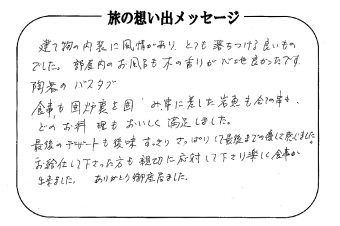 旅の想い出メッセージ
建て物の内装に風情があり、とても落ちつける良いもの
でした。部屋内のお風呂も木の香りが心地良かったです
陶器のバスタブ
食事も囲炉裏を囲み 串に差した岩魚も
どのお料理もおいしく満足しました。
最後のデザートも後味すっきりさっぱりして最後までの優しさを感じました。
お給仕して下さった方も親切に応対して下さり楽しく食事が
出来ました。 ありがとう御座居ました。